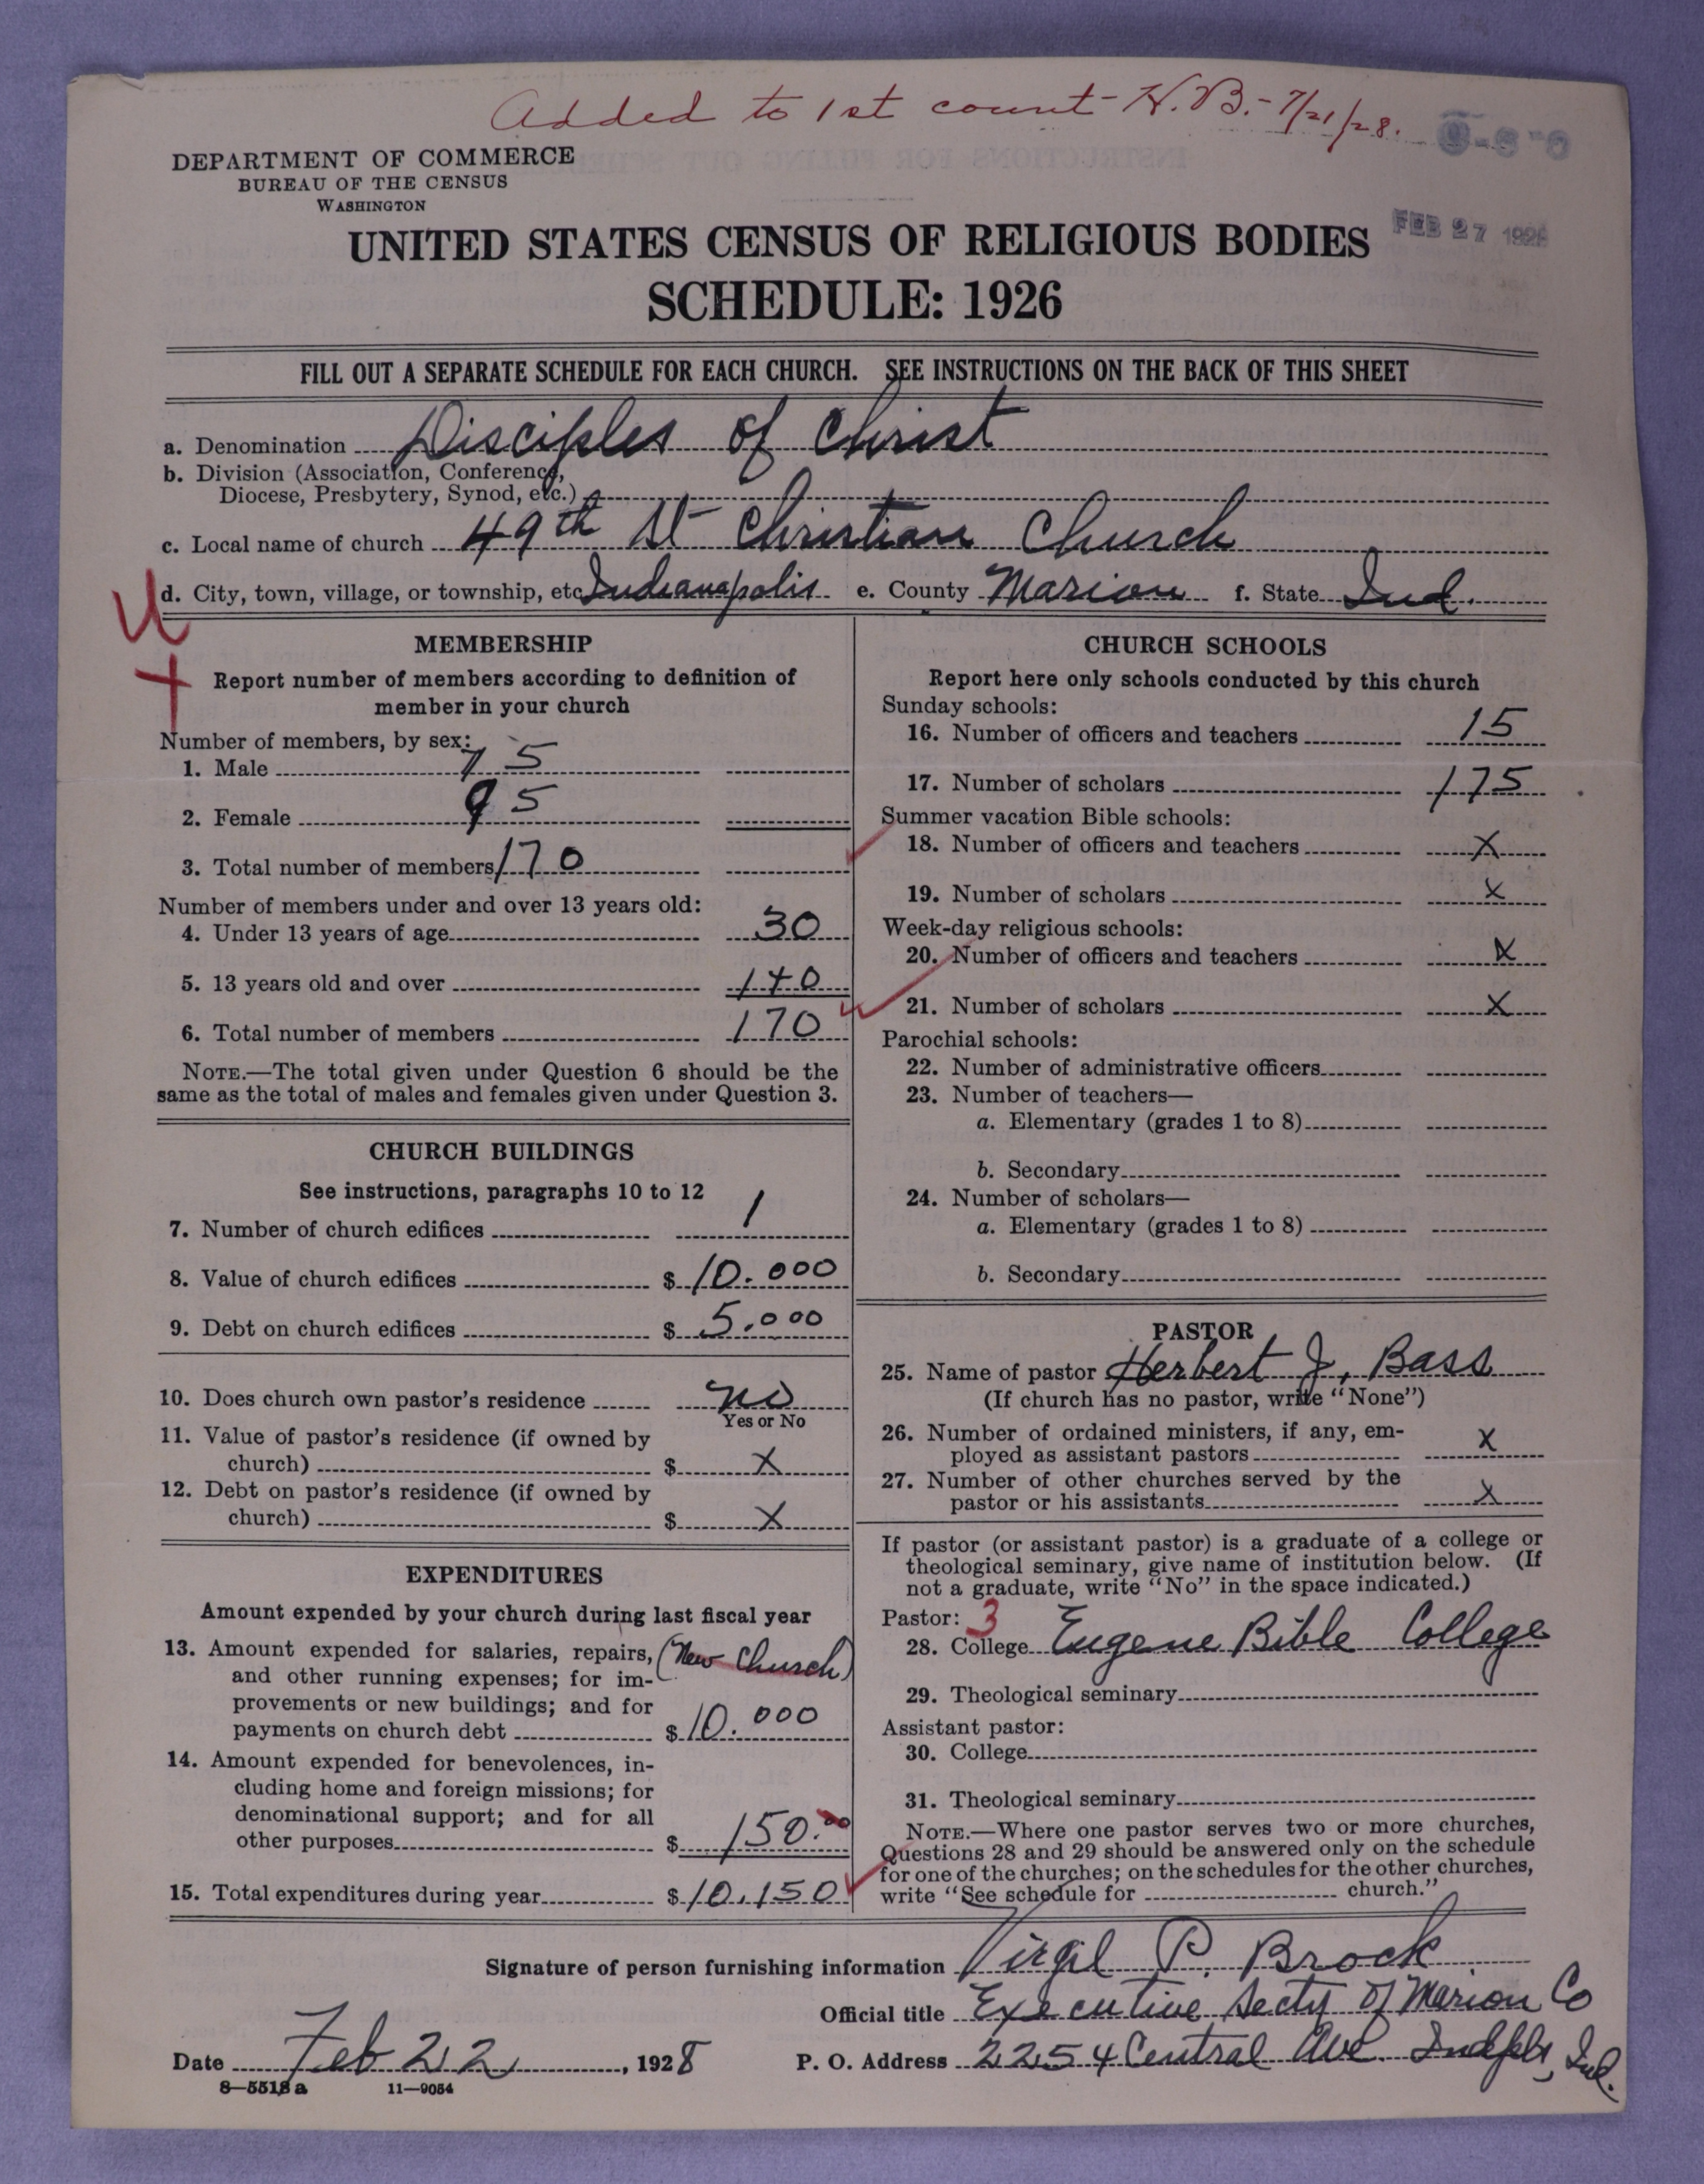 Added to 1st count - H.B. - 7/21/28.
DEPARTMENT OF COMMERCE
BUREAU OF THE CENSUS
WASHINGTON
FEB 27 1928
UNITED STATES CENSUS OF RELIGIOUS BODIES
SCHEDULE: 1926
FILL OUT A SEPARATE SCHEDULE FOR EACH CHURCH. SEE INSTRUCTIONS ON THE BACK OF THIS SHEET
a. Denomination Disciples of Christ
b. Division (Association, Conference,
Diocese, Presbytery, Synod, etc.)
c. Local name of church 49th St Christian Church
d. City, town, village, or township, etc Indianapolis e. County Marion f. State Ind.
U
MEMBERSHIP
Report number of members according to definition of
member in your church
Number of members, by sex:
1. Male 75
2. Female 95
3. Total number of members 170
Number of members under and over 13 years old:
4. Under 13 years of age 30
5. 13 years old and over 140
6. Total number of members 170
NOTE.—The total given under Question 6 should be the
same as the total of males and females given under Question 3.
CHURCH BUILDINGS
See instructions, paragraphs 10 to 12
7. Number of church edifices 1
8. Value of church edifices $ 10.000
9. Debt on church edifices $ 5.000
10. Does church own pastor's residence no
Yes or No
11. Value of pastor's residence (if owned by
church) $ X
12. Debt on pastor's residence (if owned by
church) $ X
EXPENDITURES
Amount expended by your church during last fiscal year
13. Amount expended for salaries, repairs, (New Church)
and other running expenses; for im-
provements or new buildings; and for
payments on church debt $ 10.000
14. Amount expended for benevolences, in-
cluding home and foreign missions; for
denominational support; and for all
other purposes $ 150.00
15. Total expenditures during year $ 10,150
CHURCH SCHOOLS
Report here only schools conducted by this church
Sunday schools:
16. Number of officers and teachers 15
17. Number of scholars 175
Summer vacation Bible schools:
18. Number of officers and teachers X
19. Number of scholars X
Week-day religious schools:
20. Number of officers and teachers X
21. Number of scholars X
Parochial schools:
22. Number of administrative officers
23. Number of teachers—
a. Elementary (grades 1 to 8)
b. Secondary
24. Number of scholars—
a. Elementary (grades 1 to 8)
b. Secondary
PASTOR
25. Name of pastor Herbert J. Bass
(If church has no pastor, write "None")
26. Number of ordained ministers, if any, em-
ployed as assistant pastors X
27. Number of other churches served by the
pastor or his assistants X
If pastor (or assistant pastor) is a graduate of a college or
theological seminary, give name of institution below. (If
not a graduate, write "No" in the space indicated.)
Pastor: 3
28. College Eugene Bible College
29. Theological seminary
Assistant pastor:
30. College
31. Theological seminary
NOTE.—Where one pastor serves two or more churches,
Questions 28 and 29 should be answered only on the schedule
for one of the churches; on the schedules for the other churches,
write "See schedule for church."
Signature of person furnishing information Virgil P. Brock
Official title Executive Secty of Marion Co
Date Feb 22, 1928 P. O. Address 2254 Central Ave. Indpls, Ind.
8—5518 a 11—9054